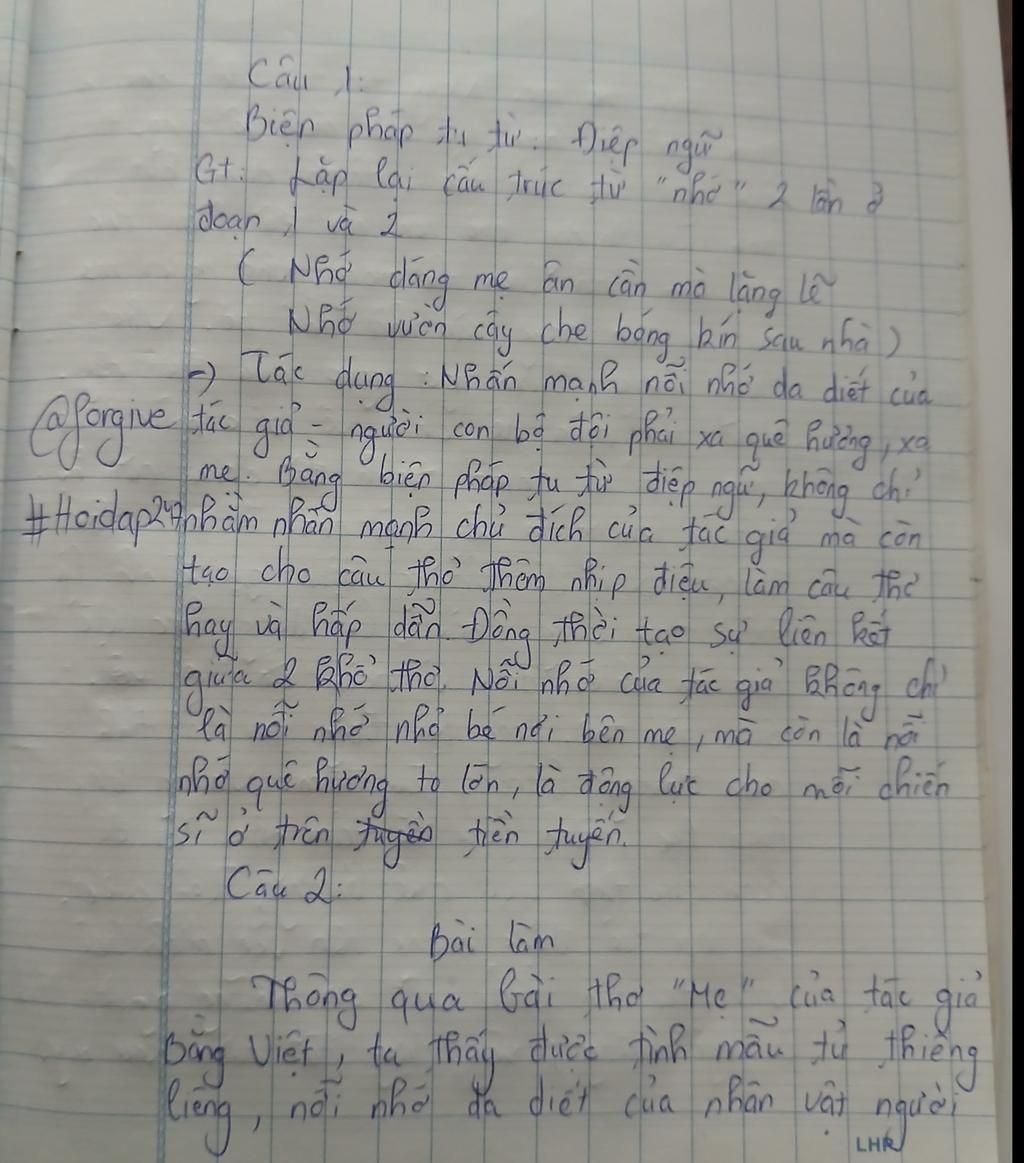 Câu 1:
Biện pháp tu từ: Điệp ngữ
Gt: Lặp lại cấu trúc từ "nhớ" 2 lần ở
đoạn 1 và 2
( Nhớ dáng mẹ ân cần mà lặng lẽ
Nhớ vườn cây che bóng kín sau nhà)
=) Tác dụng: Nhấn mạnh nỗi nhớ da diết của
@forgive tác giả - người con bộ đội phải xa quê hương, xa
mẹ. Bằng biện pháp tu từ điệp ngữ, không chỉ
#Hoidap247 nhằm nhấn mạnh chủ đích của tác giả mà còn
tạo cho câu thơ thêm nhịp điệu, làm câu thơ
hay và hấp dẫn. Đồng thời tạo sự liên kết
giữa 2 khổ thơ. Nỗi nhớ của tác giả không chỉ
là nỗi nhớ nhỏ bé nơi bên mẹ, mà còn là nỗi
nhớ quê hương to lớn, là động lực cho mỗi chiến
sĩ ở trên tiền tuyến.
Câu 2:
Bài làm
Thông qua bài thơ "Mẹ" của tác giả
Bằng Việt, ta thấy được tình mẫu tử thiêng
liêng, nỗi nhớ da diết của nhân vật người
LHR